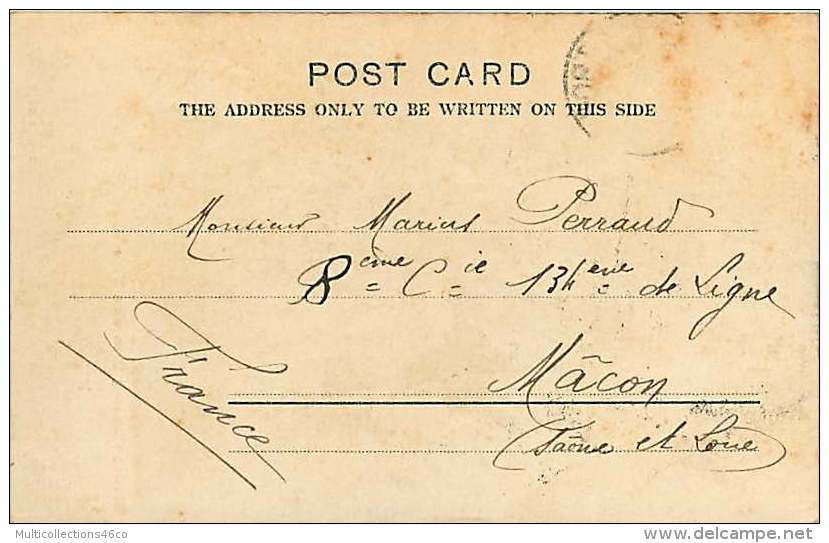 POST CARD
THE ADDRESS ONLY TO BE WRITTEN ON THIS SIDE
Monsieur Marius Perraud
8ème Cie 134ème de Ligne
Mâcon
(Saône et Loire)
France
Multicollections46co
delcampe.net